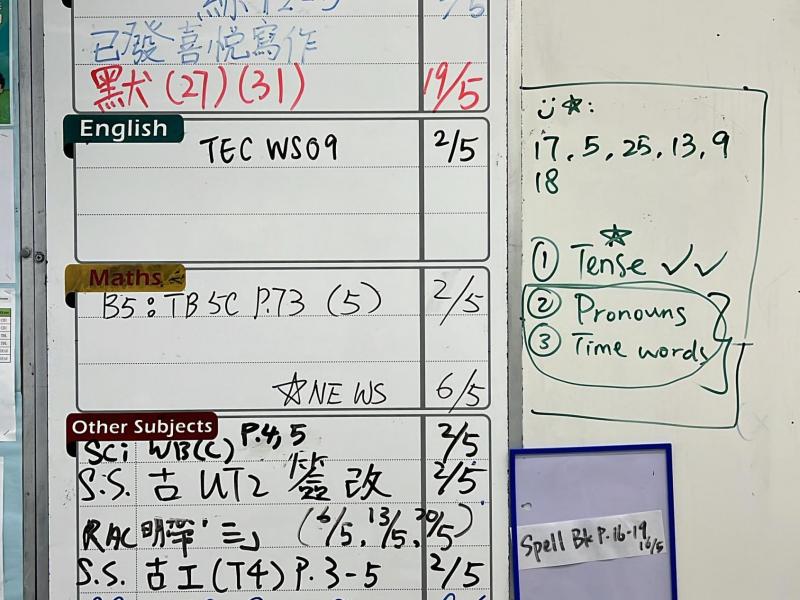 已發喜悅寫作
默(27)(31) 19/5
English
TEC WS09 2/5
Maths
B5:TB 5C P.73 (5) 2/5
☆NEWS 6/5
Other Subjects
Sci WB(C) P.4,5 2/5
S.S. 古 UT2 簽改 2/5
RAC (6/5, 13/5, 20/5)
S.S. 古工(T4) P.3-5 2/5
☆:
17, 5, 25, 13, 9
18
① Tense ✓✓
② Pronouns
③ Time words
Spell Bk P.16-19
16/5